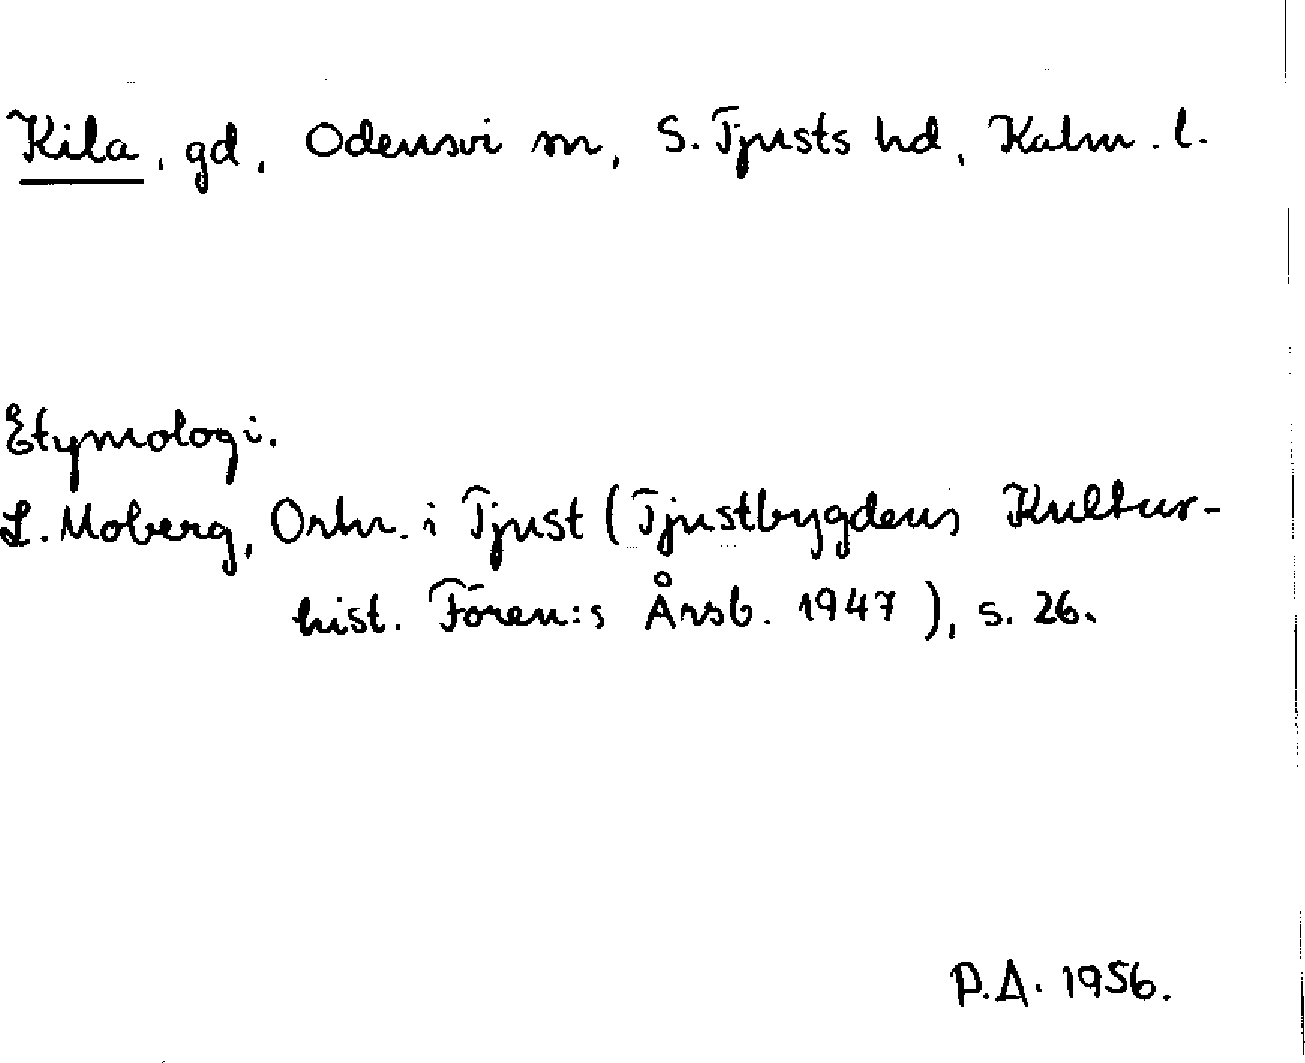 Kila, gd, Odensvi sn, S. Tjusts hd, Kalm. l.
Etymologi.
L. Moberg, Ortn. i Tjust (Tjustbygdens Kultur-
hist. Fören:s Årsb. 1947), s. 26.
P.A. 1956.